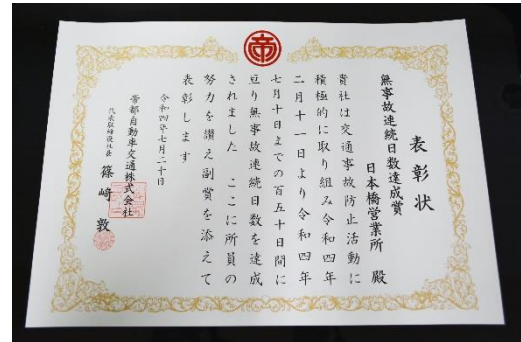 帝
表彰状
日本橋営業所 殿
無事故連続日数達成賞
貴社は交通事故防止活動に
積極的に取り組み令和四年
二月十一日より令和四年
七月十日までの百五十日間に
亘り無事故連続日数を達成
されました ここに所員の
努力を讃え副賞を添えて
表彰します
令和四年七月二十日
帝都自動車交通株式会社
代表取締役社長 篠﨑 敦